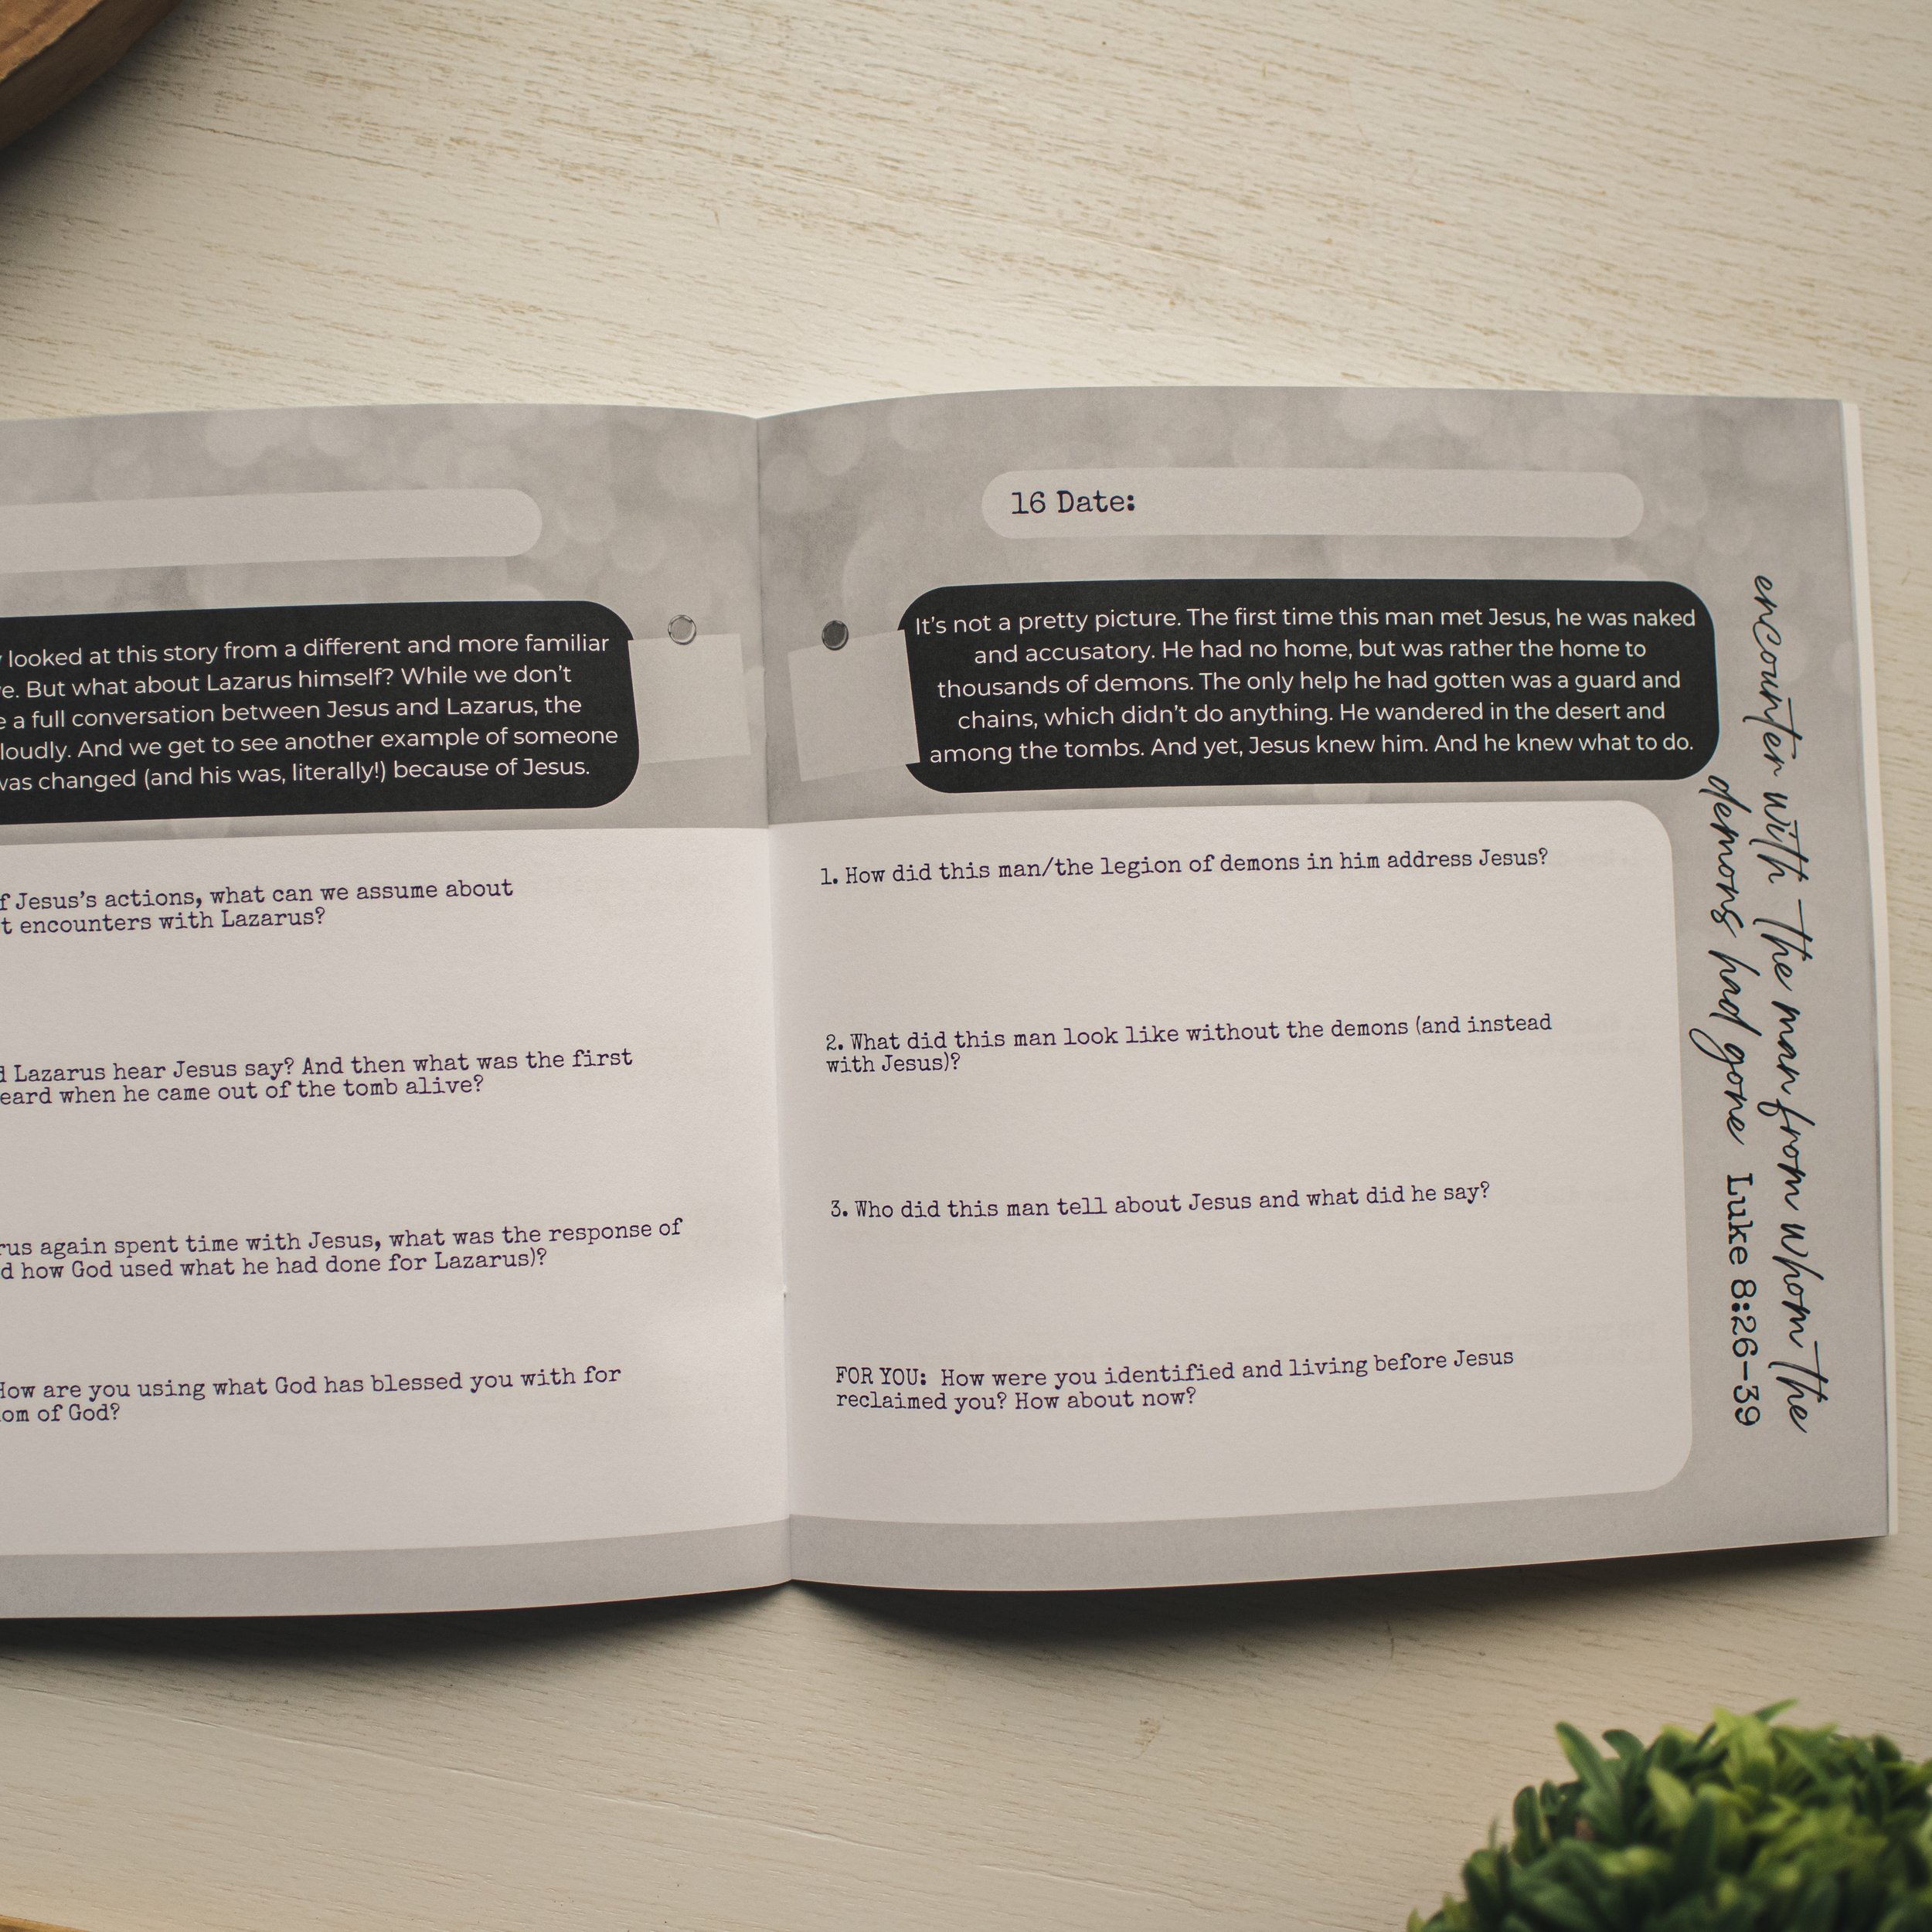 looked at this story from a different and more familiar
But what about Lazarus himself? While we don't
a full conversation between Jesus and Lazarus, the
loudly. And we get to see another example of someone
was changed (and his was, literally!) because of Jesus.
Jesus's actions, what can we assume about
encounters with Lazarus?
Lazarus hear Jesus say? And then what was the first
when he came out of the tomb alive?
again spent time with Jesus, what was the response of
how God used what he had done for Lazarus)?
How are you using what God has blessed you with for
of God?
16 Date:
It's not a pretty picture. The first time this man met Jesus, he was naked
and accusatory. He had no home, but was rather the home to
thousands of demons. The only help he had gotten was a guard and
chains, which didn't do anything. He wandered in the desert and
among the tombs. And yet, Jesus knew him. And he knew what to do.
1. How did this man/the legion of demons in him address Jesus?
2. What did this man look like without the demons (and instead
with Jesus)?
3. Who did this man tell about Jesus and what did he say?
FOR YOU: How were you identified and living before Jesus
reclaimed you? How about now?
encounter with the man from whom the
demons had gone Luke 8:26-39